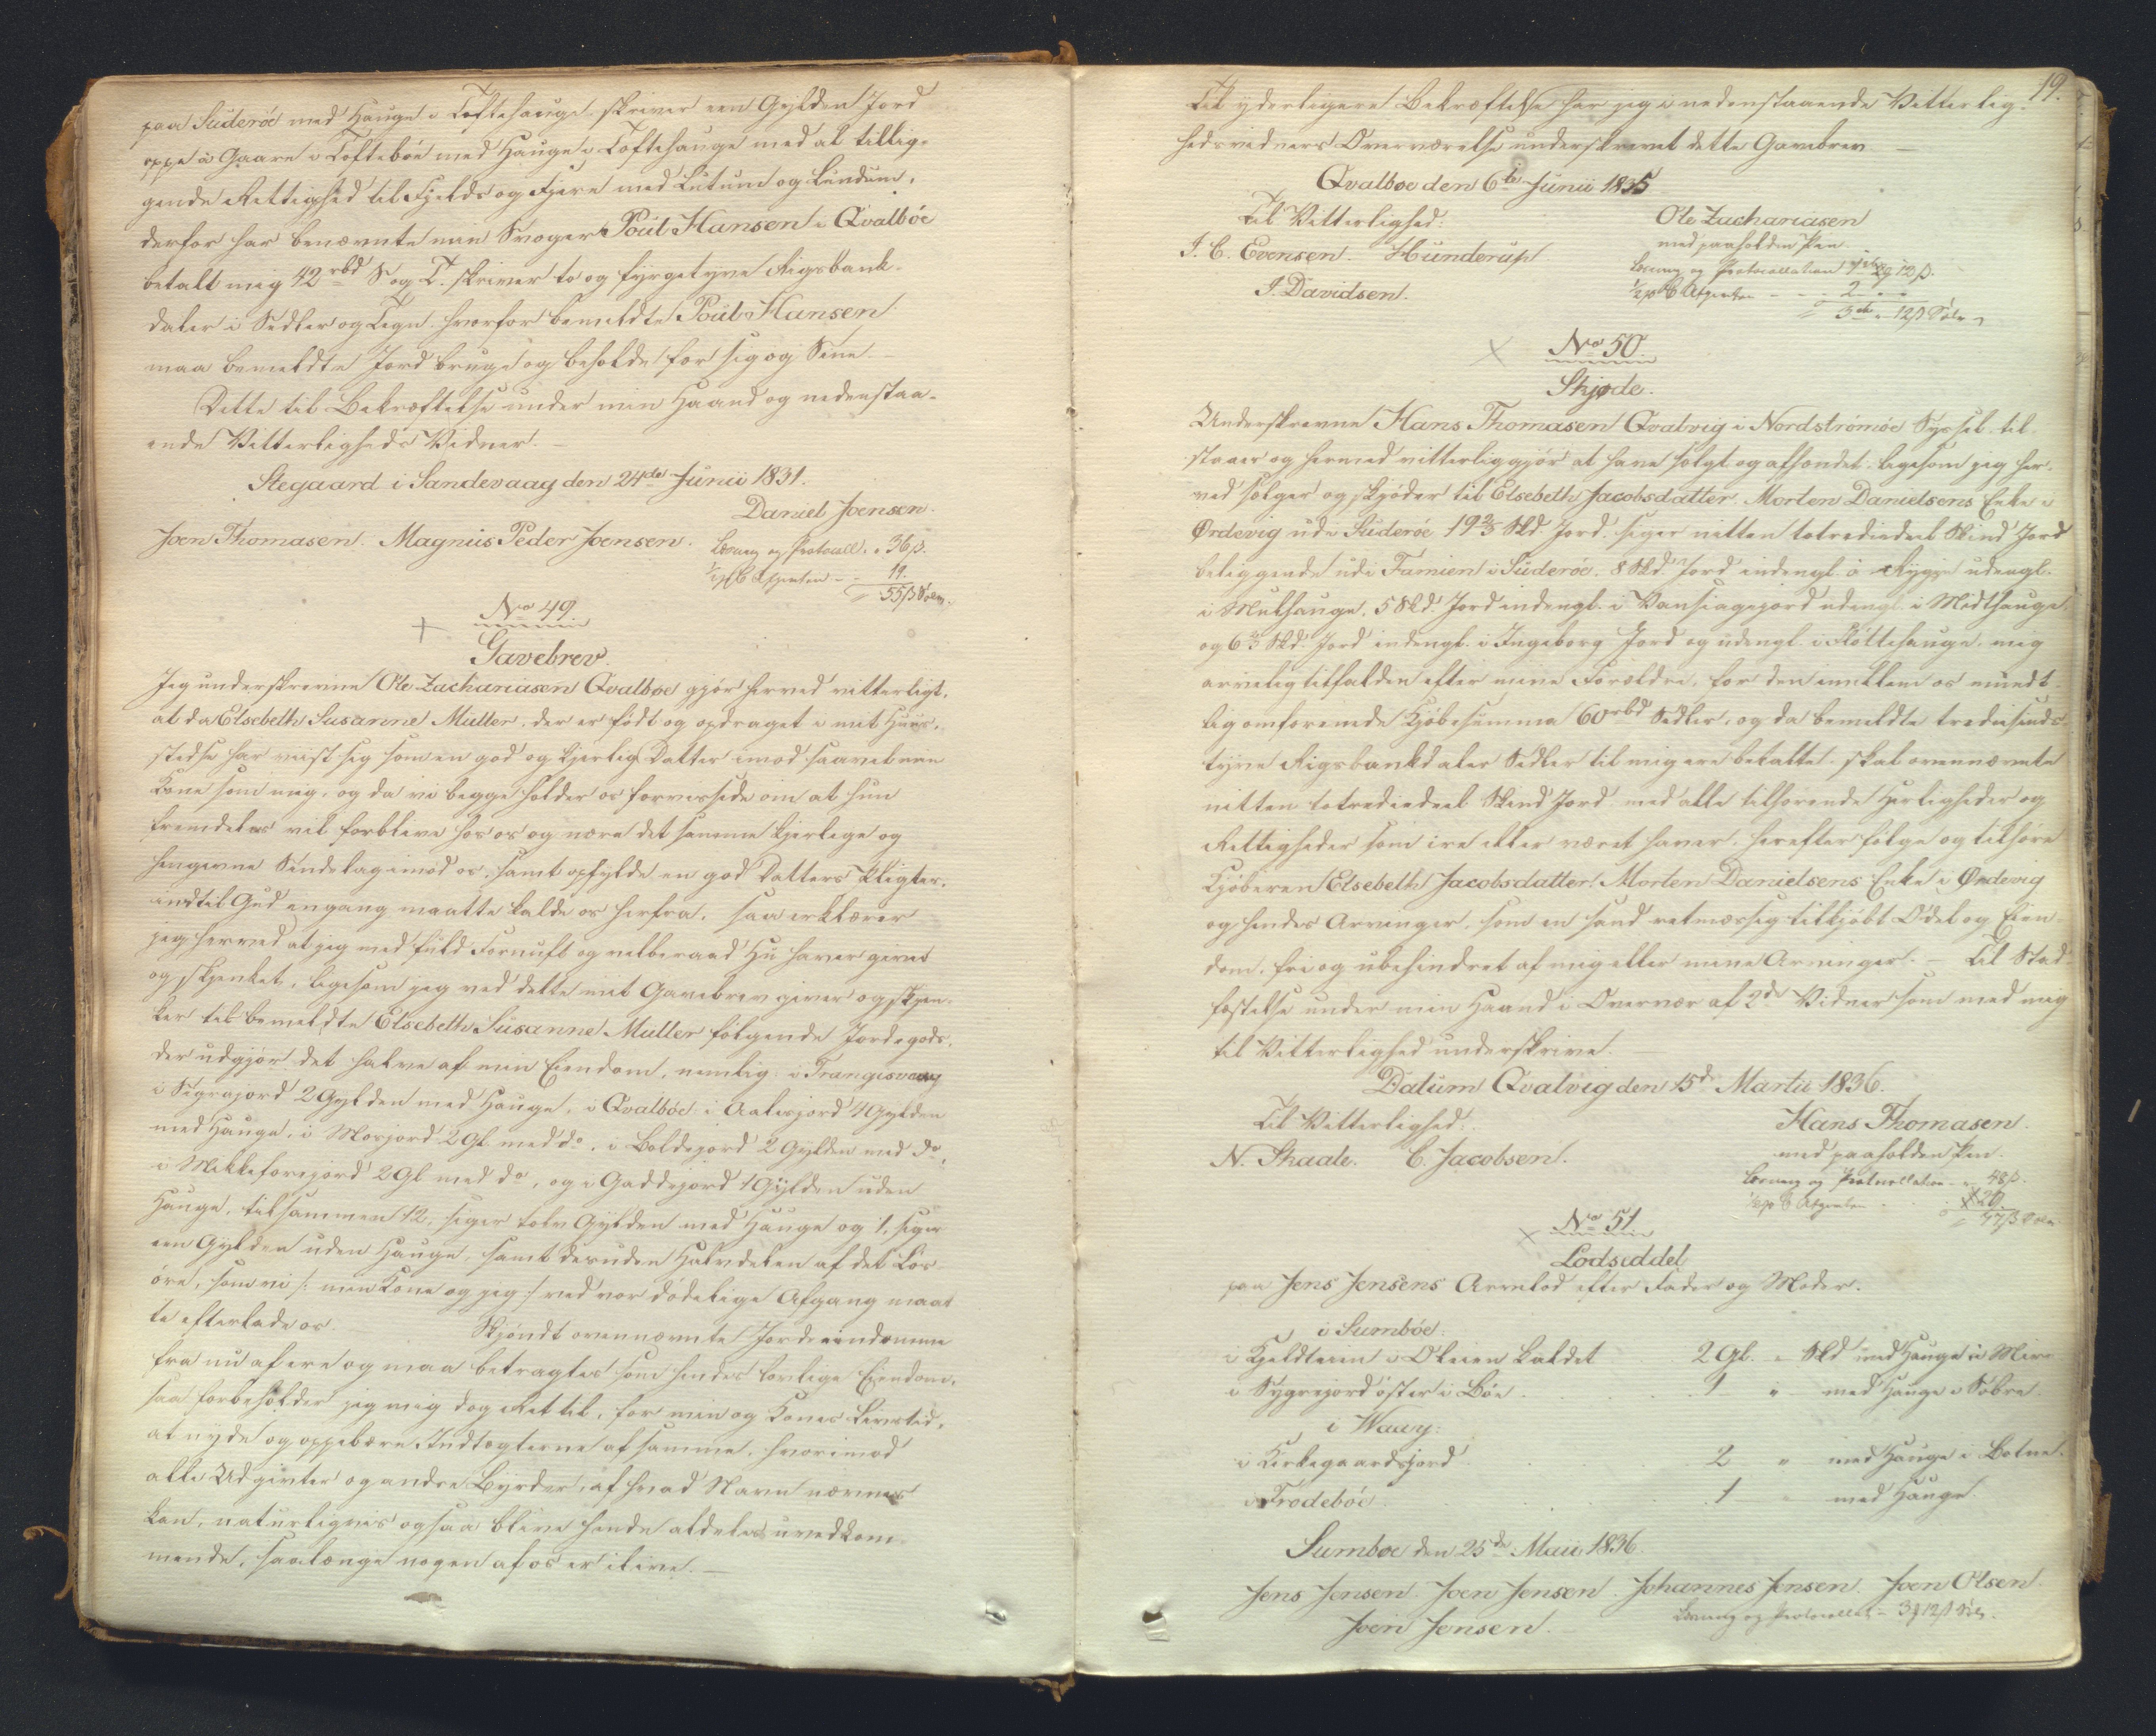 paa Suderöe med Hauge i Toftehauge skriver een Gylden Jord
oppe á Gaare i Toftebøe med Hauge i Toftehauge med al tillig-
gende Rettighed til Fjelds og Fjære med Lutum og Lundum,
derfor har benævnte min Svoger Poül Hansen i Qvalböe
betalt mig 42 rbd S og T. skriver to og fyrgetyve Rigsbank-
daler i Sedler og Tegn. hvorfor bemeldte Poül Hansen
maa bemeldte Jord bruge og beholde for sig og Sine.
Dette til Bekræftelse under min Haand og nedenstaa-
ende Vitterligheds Vidner. –
Stegaard i Sandevaag den 24de Junii 1831.
Daniel Joensen.
Joen Thomasen. Magnus Peder Joensen.
Læsning og Protocoll. " 36 ß.
½ pC Afgiften – – 19.
= 55 ß Sølv.
No 49
Gavebrev.
Jeg underskrevne Ole Zachariasen Qvalboe gjör herved vitterligt,
at da Elsebeth Susanne Müller, der er född og opdraget i mit Huus,
stedse har viist sig som en god og kjerlig Datter imod saavel min
Kone som mig, og da vi begge holder os forvissede om at hun
fremdeles vil forblive hos os og nære det samme kjerlige og
hengivne Sindelag imod os, samt opfylde en god Datters Pligter,
indtil Gud engang maatte kalde os herfra, saa erklærer
jeg herved at jeg med fuld Fornuft og velberaad Hu haver givet
og skjenket, ligesom jeg ved dette mit Gavebrev giver og skjen-
ker til bemeldte Elsebeth Süsanne Muller fölgende Jordegods,
der udgjör det halve af min Eiendom, nemlig: i Trangisvaag
i Sigrajord 2 Gylden med Hauge, i Qvalböe i Aalesjord 4 Gylden
med Hauge, i Morjord 2 Gl. med do, i Boldejord 2 Gylden med do,
i Mikkeforejord 2 Gl med do, og i Gaddejord 1 Gylden uden
Hauge, tilsammen 12, siger tolv Gylden med Hauge og 1, siger
een Gylden uden Hauge, samt desuden Halvdelen af det Lös-
öre, som vi /: min Kone og jeg :/ ved vor dödelige Afgang maat-
te efterlade os. – Skjöndt ovennævnte Jordeiendomme
fra nu af ere og maa betragtes som hendes lovlige Eiendom,
saa forbeholder jeg mig dog Ret til, for min og Kones Livstid,
at nyde og oppebære Indtægterne af samme, hvorimod
alle Udgivter og andre Byrder, af hvad Navn nævnes
kan, naturligvis ogsaa blive hende aldeles uvedkom-
mende, saalænge nogen af os er ilive. –
19.
Til yderligere Bekræftelse har jeg i nedenstaaende Vitterlig-
hedsvidners Overværelse underskrevet dette Gavebrev –
Qvalboe den 6te Junii 1835
Til Vitterlighed: Ole Zachariasen
med paaholden Pen.
J. C. Evensen. Hünderüp
Læsning og Protocollation 1 rbd 12 ß.
J. Davidsen.
½ pC Afgiften – – 2 – "
= 3 rbd " 12 ß Sölv
No 50.
Skjøde.
Underskrevne Hans Thomasen Qvalvig i Nordströmöe Syssel til-
staaer og hermed vitterliggjör at have solgt og afhændet, ligesom jeg her-
ved sælger og skjöder til Elsebeth Jacobsdatter Morten Danielsens Enke i
Ørdevig udi Süderöe 19⅔ Skd. Jord, siger nitten totrediedeel Skind Jord
beliggende udi Famien i Süderöe. 8 Skd. Jord indengl. á Rygge udengl.
i Mulhauge, 5 Skd. Jord indengl. i Vansiagejord udengl. i Midthauge,
og 6⅔ Skd. Jord indengl. i Ingeborg Jord og udengl. i Fløttehauge, mig
arvelig tilfalden efter mine Forældre, for den imellem os mundt-
lig omforenede Kjöbesumma 60 rbd Sedler, og da bemeldte tredsinds-
tyve Rigsbankdaler Sedler til mig ere betalte, skal ovennævnte
nitten totrediedeel Skind Jord med alle tilhörende Herligheder og
Rettigheder som ere eller været haver, herefter fölge og tilhöre
Kjöberen Elsebeth Jacobsdatter Morten Danielsens Enke i Ørdevig
og hendes Arvinger, som en sand retmæssig tilkjöbt Odel og Eien-
dom, fri og ubehindret af mig eller mine Arvinger. – Til Stad-
fæstelse under min Haand i Overvær af 2de Vidner som med mig
til Vitterlighed underskrive. –
Datum Qvalvig den 15de Martii 1836.
Til Vitterlighed: Hans Thomasen.
med paaholden Pen.
N. Skaale. C. Jacobsen.
Læsning og Protocollation – " 48 ß.
½ pC Afgiften
= 77 ß Sølv
No 51.
Lodseddel
paa Jens Jensens Arvelod efter Fader og Moder.
i Sumböe:
i Kjeldteien i Oteien kaldet 2 Gl. " Skd med Hauge i Mire
i Sygrejord öster i Böe. 1 " med Hauge i Söbre.
i Waag:
i Kirkegaardsjord 2 " med Hauge i Botne.
i Frodeböe. 1 " med Hauge.
Sumboe den 25de Maii 1836.
Jens Jensen. Joen Jensen. Johannes Jensen. Joen Olsen
Læsning og Protocollat. – 3 ƒ 12 ß Sölv.
Joen Jensen. –